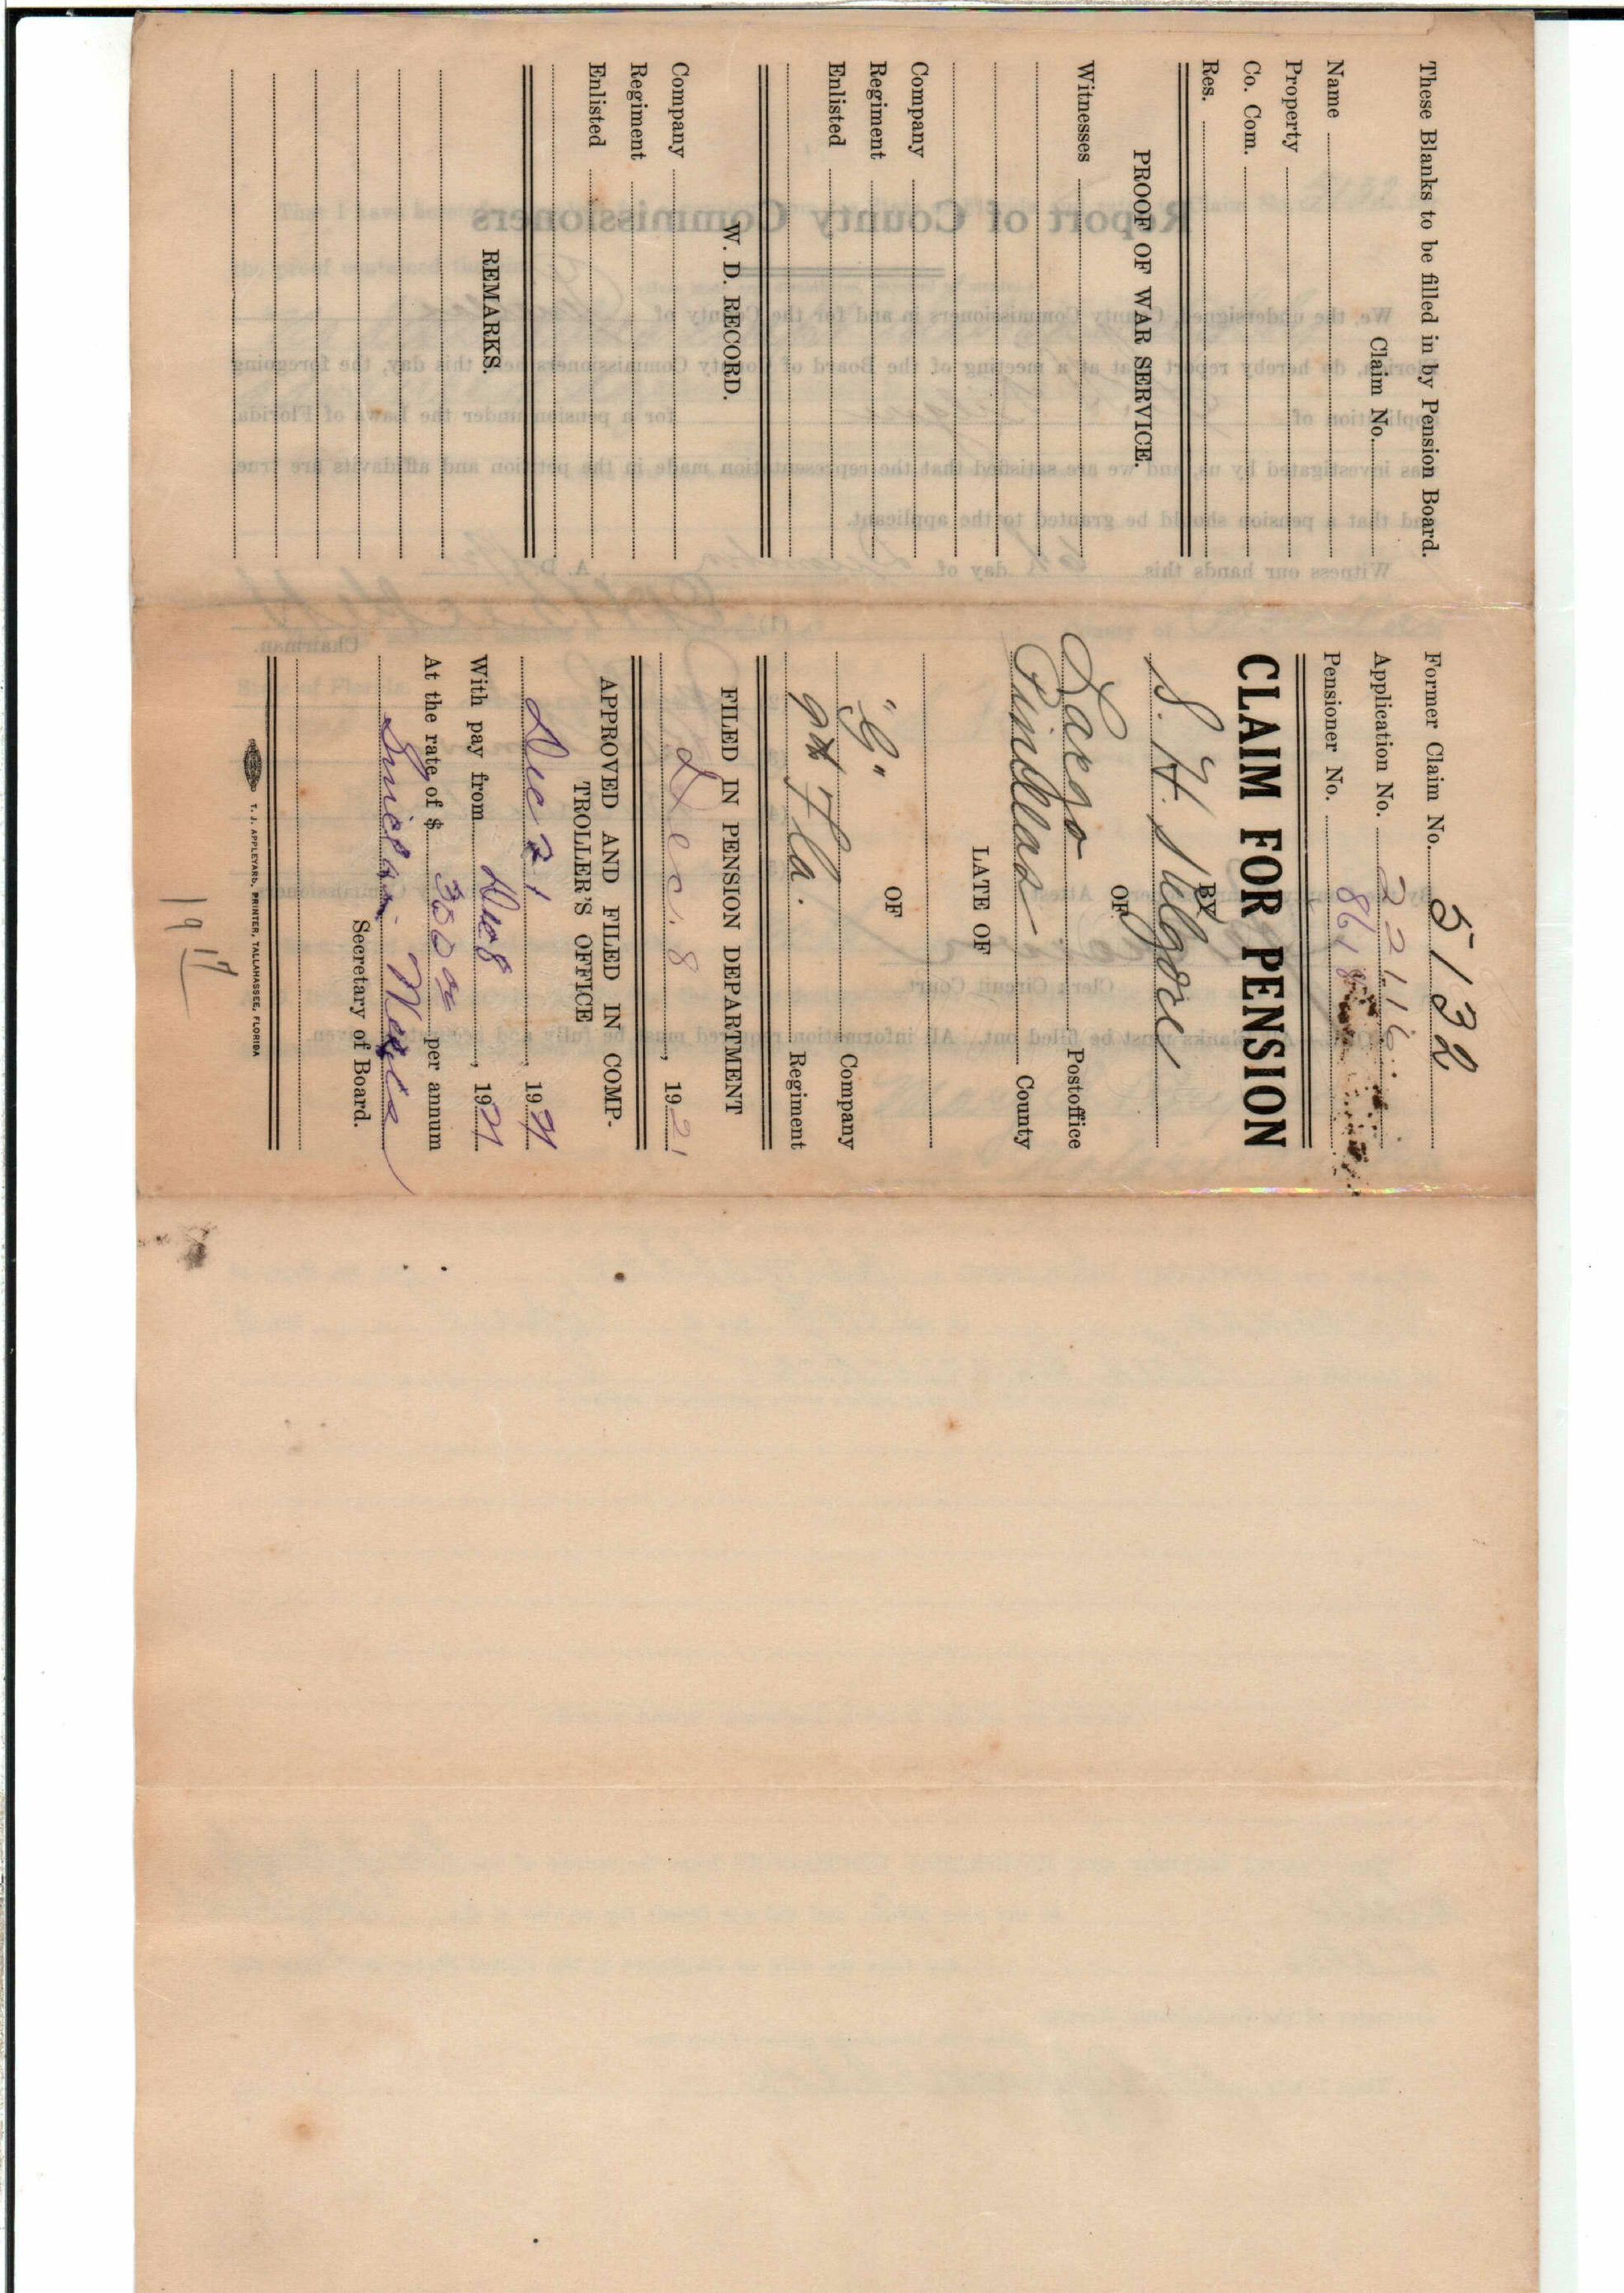 These Blanks to be filled in by Pension Board.
Claim No.
Name
Property
Co. Com.
Res.
PROOF OF WAR SERVICE.
Witnesses
Company
Regiment
Enlisted
W. D. RECORD.
Company
Regiment
Enlisted
REMARKS.
Former Claim No. 5132
Application No. 22116
Pensioner No. 8618
CLAIM FOR PENSION
BY
S. H. Kilgore
OF
Largo Postoffice
Pinellas County
LATE OF
OF
"G" Company
9th Fla. Regiment
FILED IN PENSION DEPARTMENT
Dec. 8, 1921
APPROVED AND FILED IN COMP-
TROLLER'S OFFICE
Dec 21, 1921
With pay from Dec 8, 1921
At the rate of $ 300 00 per annum
Sinclair Wells
Secretary of Board.
T. J. APPLEYARD, PRINTER, TALLAHASSEE, FLORIDA
1917
Report of County Commissioners
We, the undersigned, County Commissioners in and for the County of Pinellas
Florida, do hereby report that at a meeting of the Board of County Commissioners held this day, the foregoing
application of Kilgore for a pension under the Laws of Florida
was investigated by us, and we are satisfied that the representation made in the petition and affidavits are true
and that a pension should be granted to the applicant.
Witness our hands this 6th day of December A. D.
Chairman.
Clerk Circuit Court.